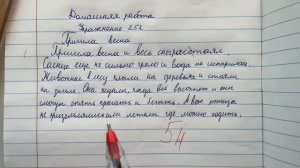 Домашняя работа
Упражнение 252
Пришла весна
Пришла весна и весь
Солнце еще не сильно грело и вода не испарилась.
Животные в лесу спали на деревьях и стояли
на земле. Они ждали, когда все растает и они
смогут опять прыгать и бегать. А вот птицы
не летали где можно ходить.
5+